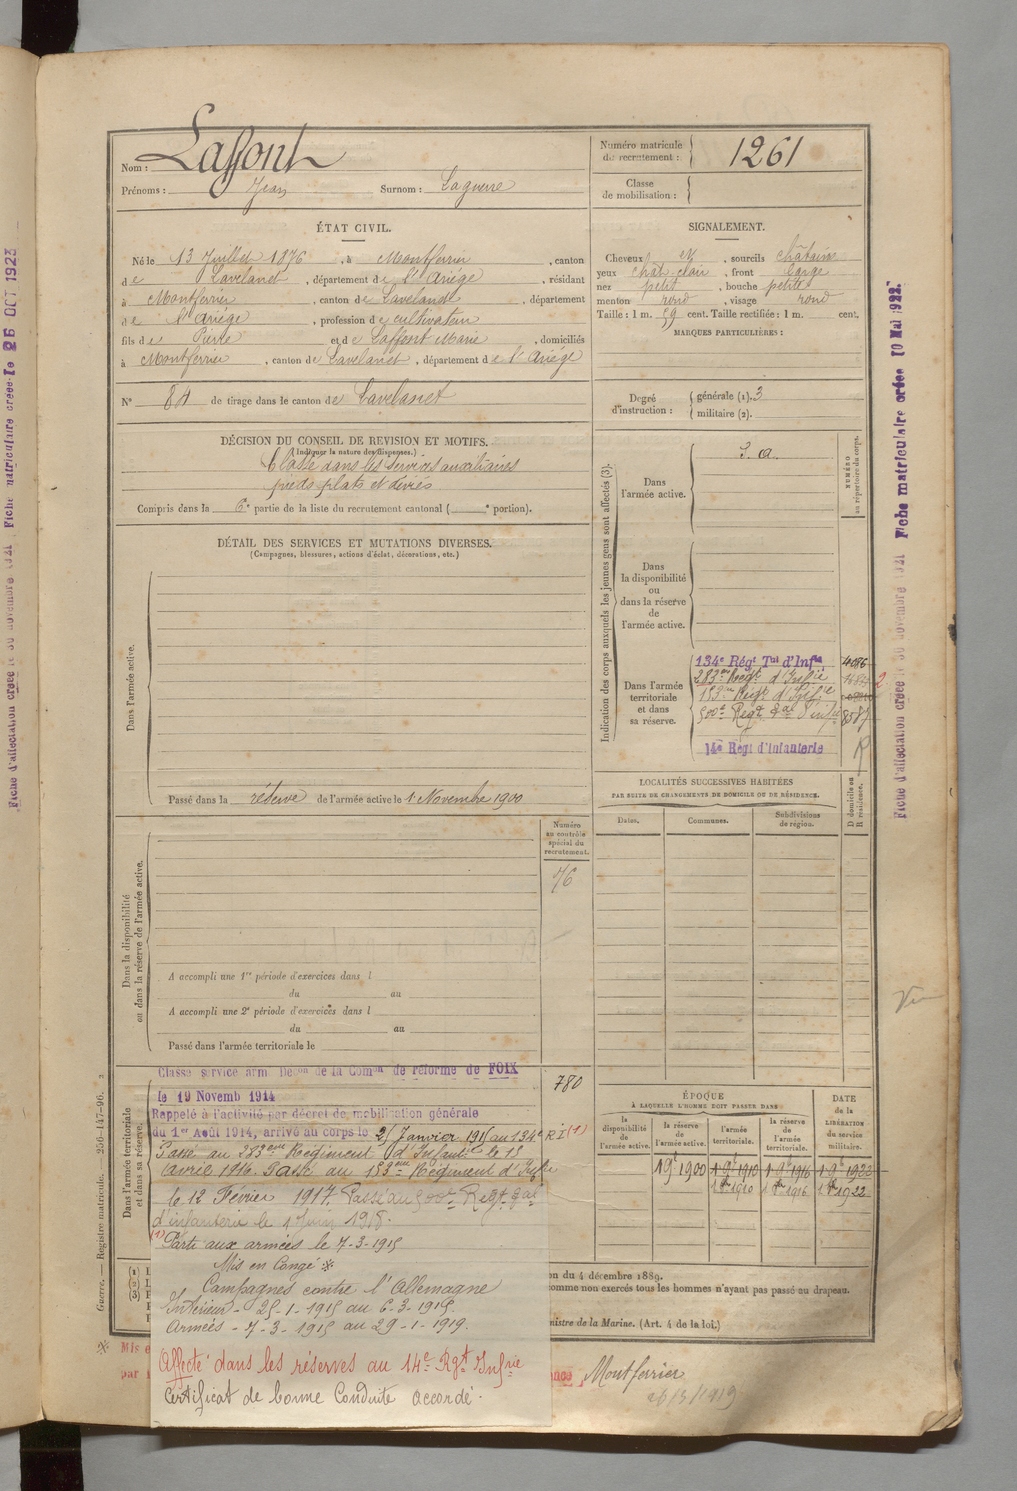 Nom : Laffont
Prénoms : Jean Surnom : Laguerre
Numéro matricule du recrutement : 1261
Classe de mobilisation :
ÉTAT CIVIL.
Né le 13 Juillet 1876, à Montferrier, canton
de Lavelanet, département de l'Ariége, résidant
à Montferrier, canton de Lavelanet, département
de l'Ariége, profession de cultivateur
fils de Pierre et de Laffont Marie, domiciliés
à Montferrier, canton de Lavelanet, département de l'Ariége
N° 84 de tirage dans le canton de Lavelanet
SIGNALEMENT.
Cheveux et, sourcils châtains
yeux chât clair, front large
nez petit, bouche petite
menton rond, visage rond
Taille : 1 m. 59 cent. Taille rectifiée : 1 m. cent.
MARQUES PARTICULIÈRES :
Degré d'instruction : générale (1). 3
militaire (2).
DÉCISION DU CONSEIL DE REVISION ET MOTIFS.
(Indiquer la nature des dispenses.)
Classé dans les services auxiliaires
pieds plats et déviés
Compris dans la 6e partie de la liste du recrutement cantonal ( e portion).
DÉTAIL DES SERVICES ET MUTATIONS DIVERSES.
(Campagnes, blessures, actions d'éclat, décorations, etc.)
Dans l'armée active.
Passé dans la réserve de l'armée active le 1 Novembre 1900
Indication des corps auxquels les jeunes gens sont affectés (3).
NUMÉRO au répertoire du corps.
Dans l'armée active. S. a.
Dans la disponibilité ou dans la réserve de l'armée active.
Dans l'armée territoriale et dans sa réserve.
134e Régt Tal d'Infie 4086
283me Regt d'Infie
153me Regt d'Infie
500e Regt Tal d'infie 8587
14e Régt d'Infanterie R
LOCALITÉS SUCCESSIVES HABITÉES
PAR SUITE DE CHANGEMENTS DE DOMICILE OU DE RÉSIDENCE.
Dates. Communes. Subdivisions de région. D domicile ou R résidence.
Numéro au contrôle spécial du recrutement.
76
Dans la disponibilité ou dans la réserve de l'armée active.
A accompli une 1re période d'exercices dans l
du au
A accompli une 2e période d'exercices dans l
du au
Passé dans l'armée territoriale le
Dans l'armée territoriale et dans sa réserve.
Classé service armé Décon de la Comon de réforme de FOIX 780
le 19 Novemb 1914
Rappelé à l'activité par décret de mobilisation générale
du 1er Août 1914, arrivé au corps le 25 Janvier 1915 au 134e R I (1)
Passé au 283eme Régiment d'Infanie le 13
avril 1916. Passé au 153eme Régiment d'Infie
le 12 Février 1917. Passé au 500e Regt Tal
d'infanterie le 1 Juin 1918.
(1) Parti aux armées le 7-3-1915
Mis en Congé ※
Campagnes contre l'Allemagne
Intérieur - 25-1-1915 au 6-3-1915.
Armées - 7-3-1915 au 29-1-1919.
Affecté dans les réserves au 14e Rgt Infie
Certificat de bonne Conduite accordé.
ÉPOQUE
À LAQUELLE L'HOMME DOIT PASSER DANS
la disponibilité de l'armée active. la réserve de l'armée active. l'armée territoriale. la réserve de l'armée territoriale. DATE de la LIBÉRATION du service militaire.
1 9t 1900 1 9t 1910 1 9t 1916 1 9t 1922
1 8bre 1910 1 8bre 1916 1 8bre 1922
on du 4 décembre 1889.
comme non exercés tous les hommes n'ayant pas passé au drapeau.
nistre de la Marine. (Art. 4 de la loi.)
(1) L
(2) L
(3)
※ Mis e
par
ence Montferrier
26/3/1919
Guerre. — Registre matricule. — 256-147-96.
Fiche matriculaire créée le 10 Mai 1922.
Fiche d'affectation créée le 30 novembre 1921
Fiche matriculaire créée le 26 OCT 1923
Fiche d'affectation créée le 30 novembre 1921